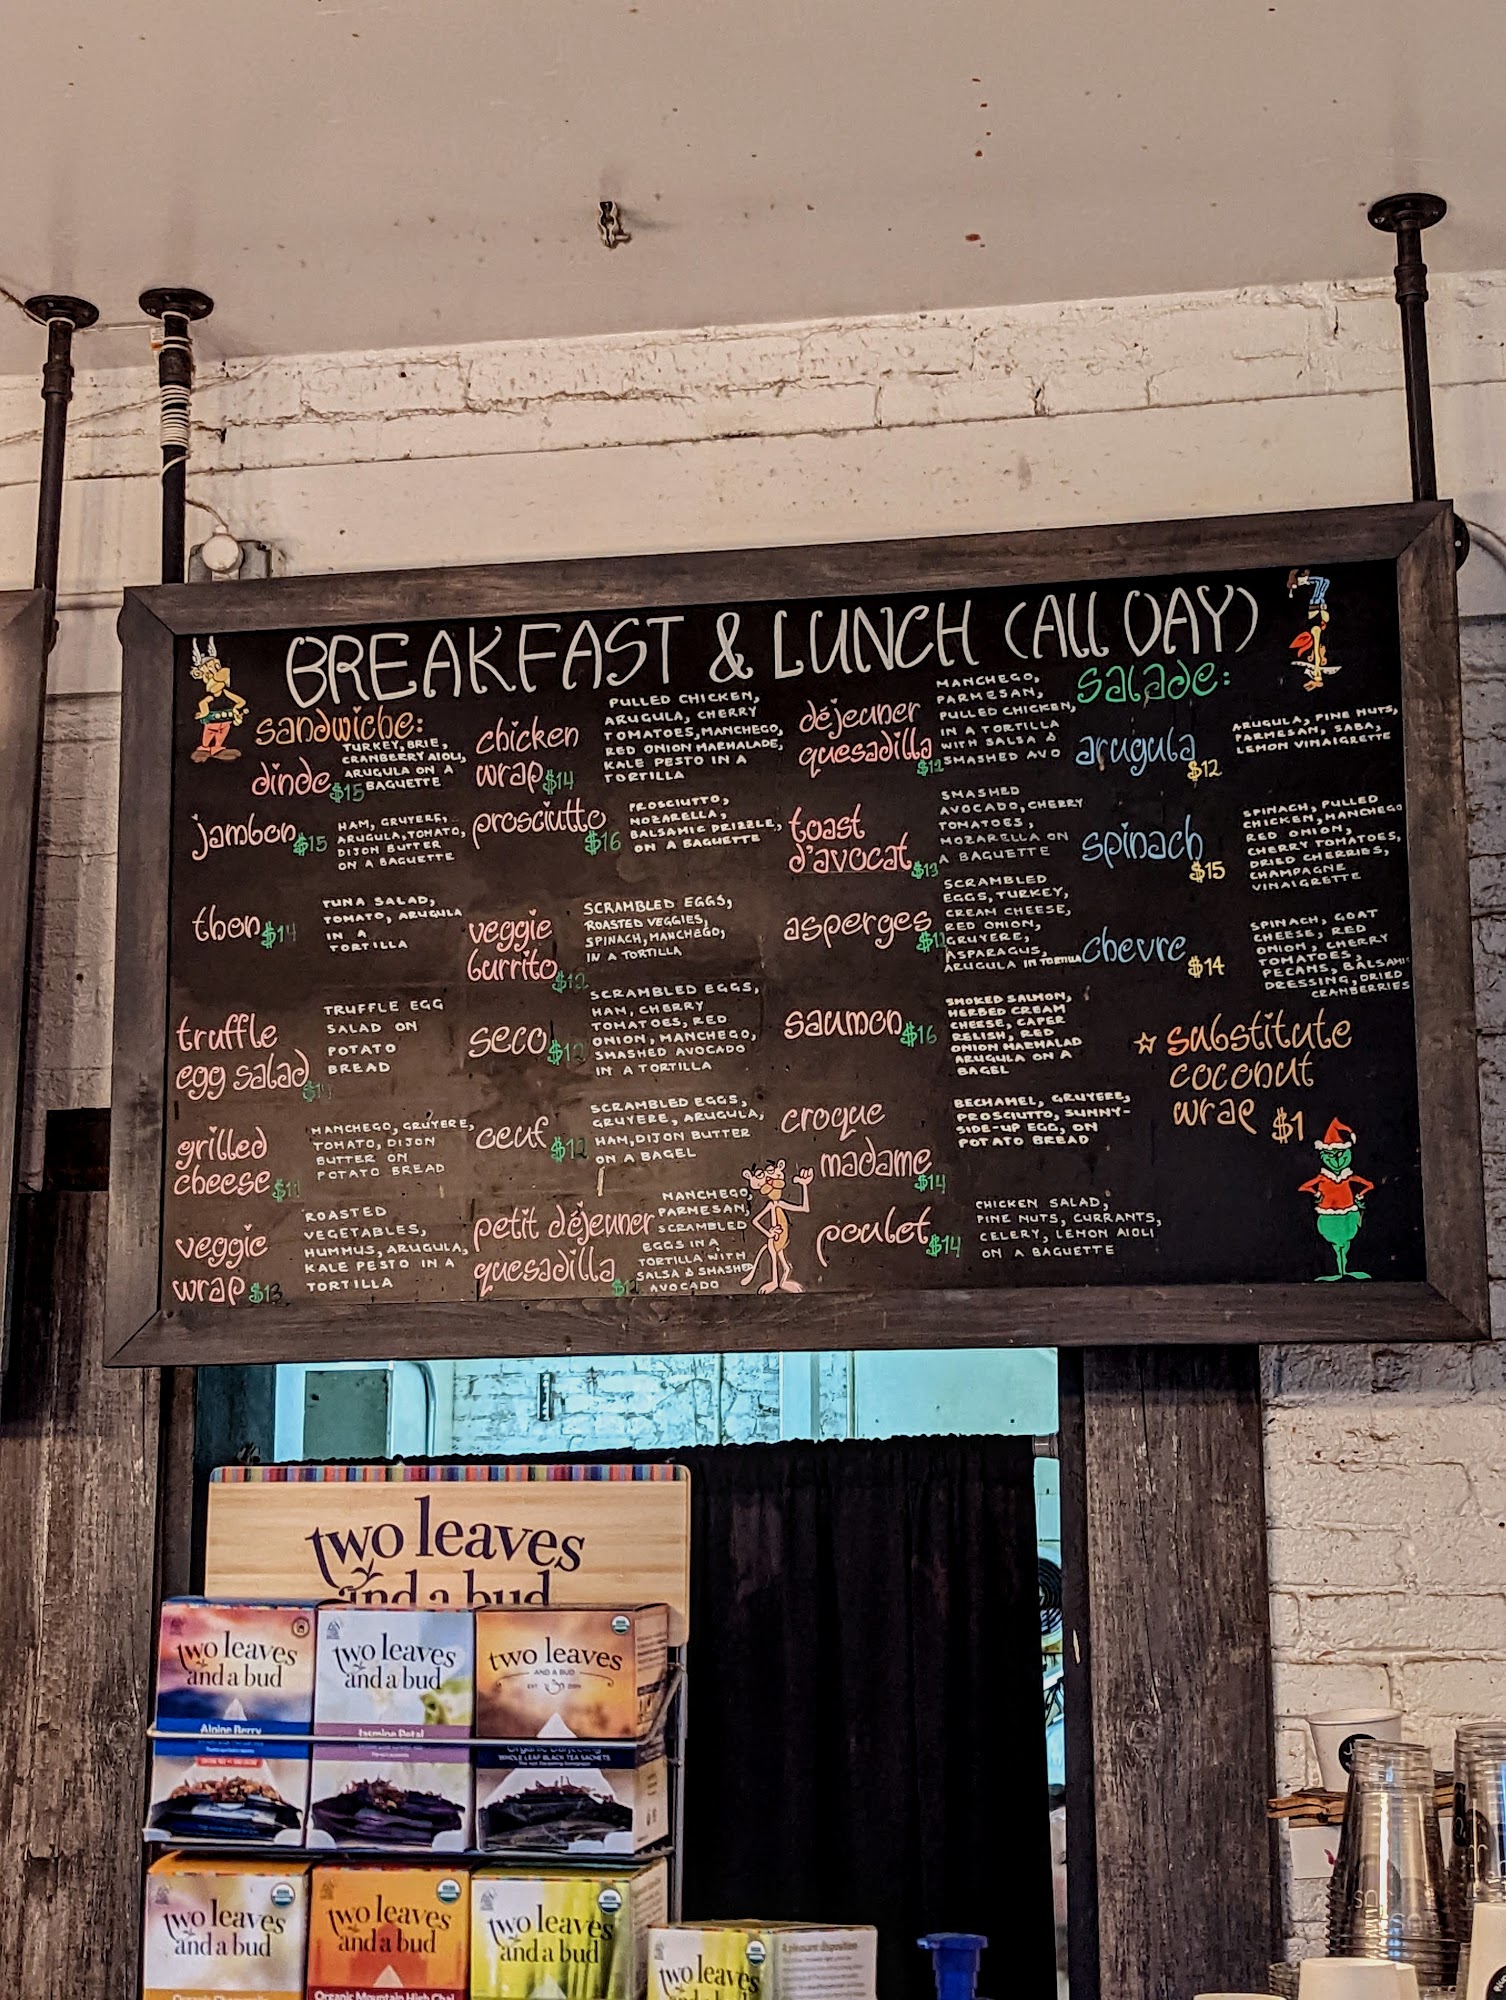 BREAKFAST & LUNCH (ALL DAY)
sandwiche:
dinde $15
TURKEY, BRIE,
CRANBERRY AIOLI,
ARUGULA ON A
BAGUETTE
jambon $15
HAM, GRUYERE,
ARUGULA, TOMATO,
DIJON BUTTER
ON A BAGUETTE
thon $14
TUNA SALAD,
TOMATO, ARUGULA
IN A
TORTILLA
truffle
egg salad
TRUFFLE EGG
SALAD ON
POTATO
BREAD
grilled
cheese $11
MANCHEGO, GRUYERE,
TOMATO, DIJON
BUTTER ON
POTATO BREAD
veggie
wrap $13
ROASTED
VEGETABLES,
HUMMUS, ARUGULA,
KALE PESTO IN A
TORTILLA
chicken
wrap $14
PULLED CHICKEN,
ARUGULA, CHERRY
TOMATOES, MANCHEGO,
RED ONION MARMALADE,
KALE PESTO IN A
TORTILLA
prosciutto
$16
PROSCIUTTO,
MOZARELLA,
BALSAMIC DRIZZLE,
ON A BAGUETTE
veggie
burrito $12
SCRAMBLED EGGS,
ROASTED VEGGIES,
SPINACH, MANCHEGO,
IN A TORTILLA
seco
SCRAMBLED EGGS,
HAM, CHERRY
TOMATOES, RED
ONION, MANCHEGO,
SMASHED AVOCADO
IN A TORTILLA
oeuf $12
SCRAMBLED EGGS,
GRUYERE, ARUGULA,
HAM, DIJON BUTTER
ON A BAGEL
petit déjeuner
quesadilla
MANCHEGO,
PARMESAN,
SCRAMBLED
EGGS IN A
TORTILLA WITH
SALSA & SMASHED
AVOCADO
déjeuner
quesadilla
$12
MANCHEGO,
PARMESAN,
PULLED CHICKEN,
IN A TORTILLA
WITH SALSA &
SMASHED AVO
toast
d'avocat $13
SMASHED
AVOCADO, CHERRY
TOMATOES,
MOZARELLA ON
A BAGUETTE
asperges
SCRAMBLED
EGGS, TURKEY,
CREAM CHEESE,
RED ONION,
GRUYERE,
ASPARAGUS,
ARUGULA IN TORTILLA
saumon $16
SMOKED SALMON,
HERBED CREAM
CHEESE, CAPER
RELISH, RED
ONION MARMALAD
ARUGULA ON A
BAGEL
croque
madame
$14
BECHAMEL, GRUYERE,
PROSCIUTTO, SUNNY-
SIDE-UP EGG, ON
POTATO BREAD
poulet $14
CHICKEN SALAD,
PINE NUTS, CURRANTS,
CELERY, LEMON AIOLI
ON A BAGUETTE
salade:
arugula
$12
ARUGULA, PINE NUTS,
PARMESAN, SABA,
LEMON VINAIGRETTE
spinach
$15
SPINACH, PULLED
CHICKEN, MANCHEGO
RED ONION,
CHERRY TOMATOES,
DRIED CHERRIES,
CHAMPAGNE
VINAIGRETTE
chevre
$14
SPINACH, GOAT
CHEESE, RED
ONION, CHERRY
TOMATOES,
PECANS, BALSAMIC
DRESSING, DRIED
CRANBERRIES
☆ substitute
coconut
wrap $1
two leaves
and a bud
two leaves
and a bud
Alpine Berry
two leaves
and a bud
Jasmine Petal
two leaves
AND A BUD
Organic Darjeeling
WHOLE LEAF BLACK TEA SACHETS
two leaves
and a bud
Organic Chamomile
two leaves
and a bud
Organic Mountain High Chai
two leaves
and a bud
two leaves
and a bud
A pleasant disposition